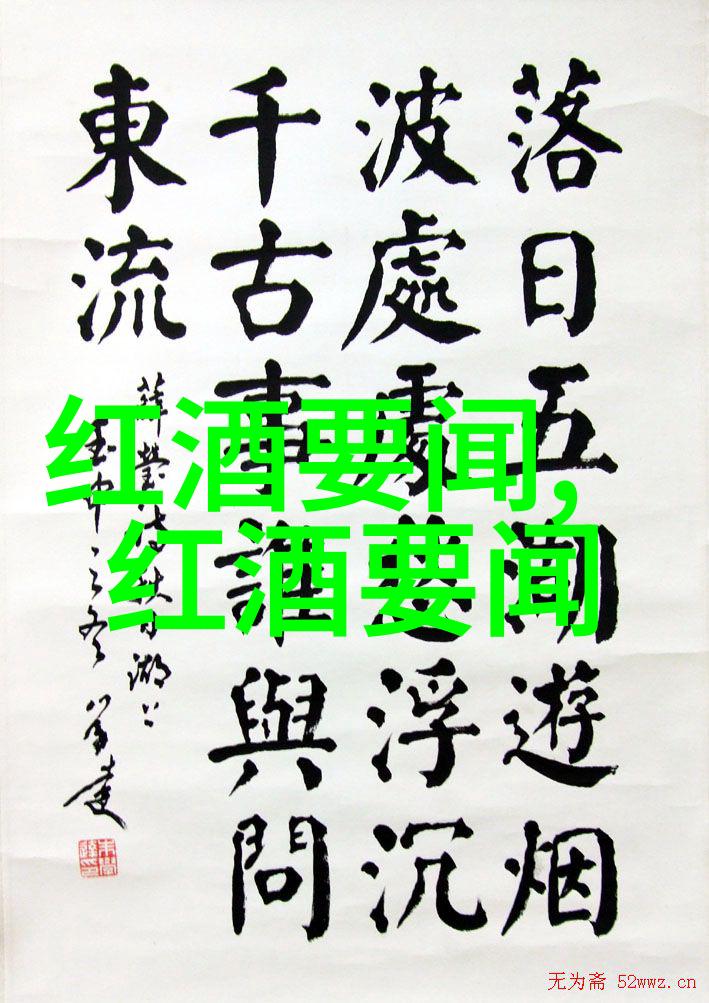 落日五湖遊烟
波處處愁浮沉
千古事誰與問
東流
薛瑩诗秋日湖上
红酒要闻,
红酒要闻
无为斋 52wwz.cn